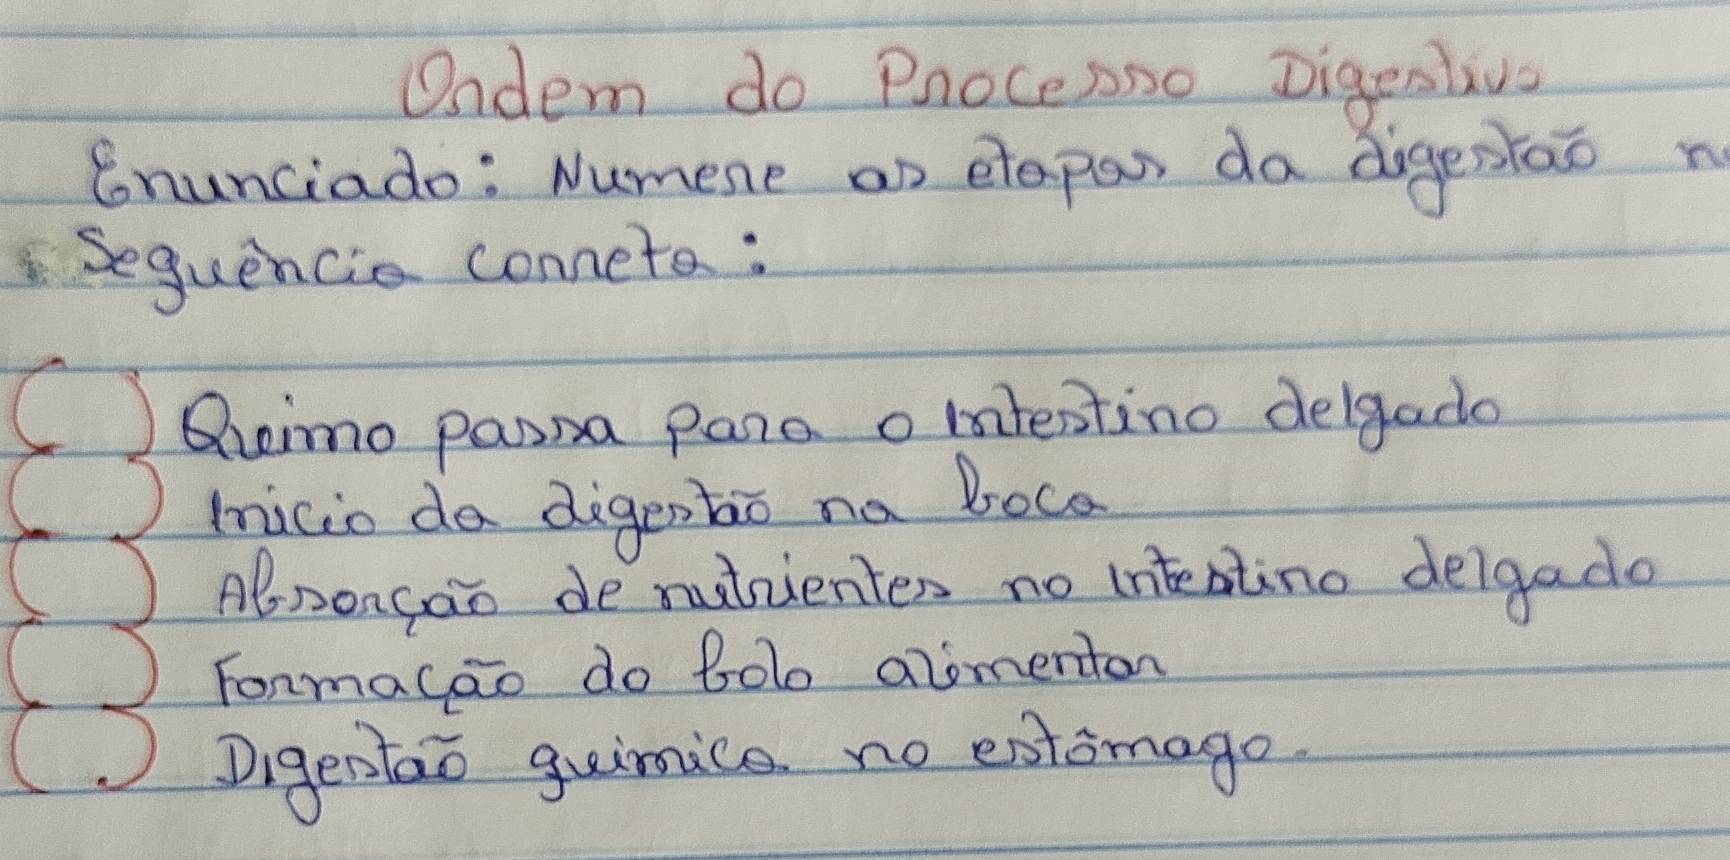 Ordem do Processo Digestivo
Enunciado: Numere as etapas da digestão n
Sequência correta:
( ) Queimo passa para o intestino delgado
( ) Inicio da digestão na boca
( ) Absorção de nutrientes no intestino delgado
( ) Formação do bolo alimentar
( ) Digestão queimica no estômago.